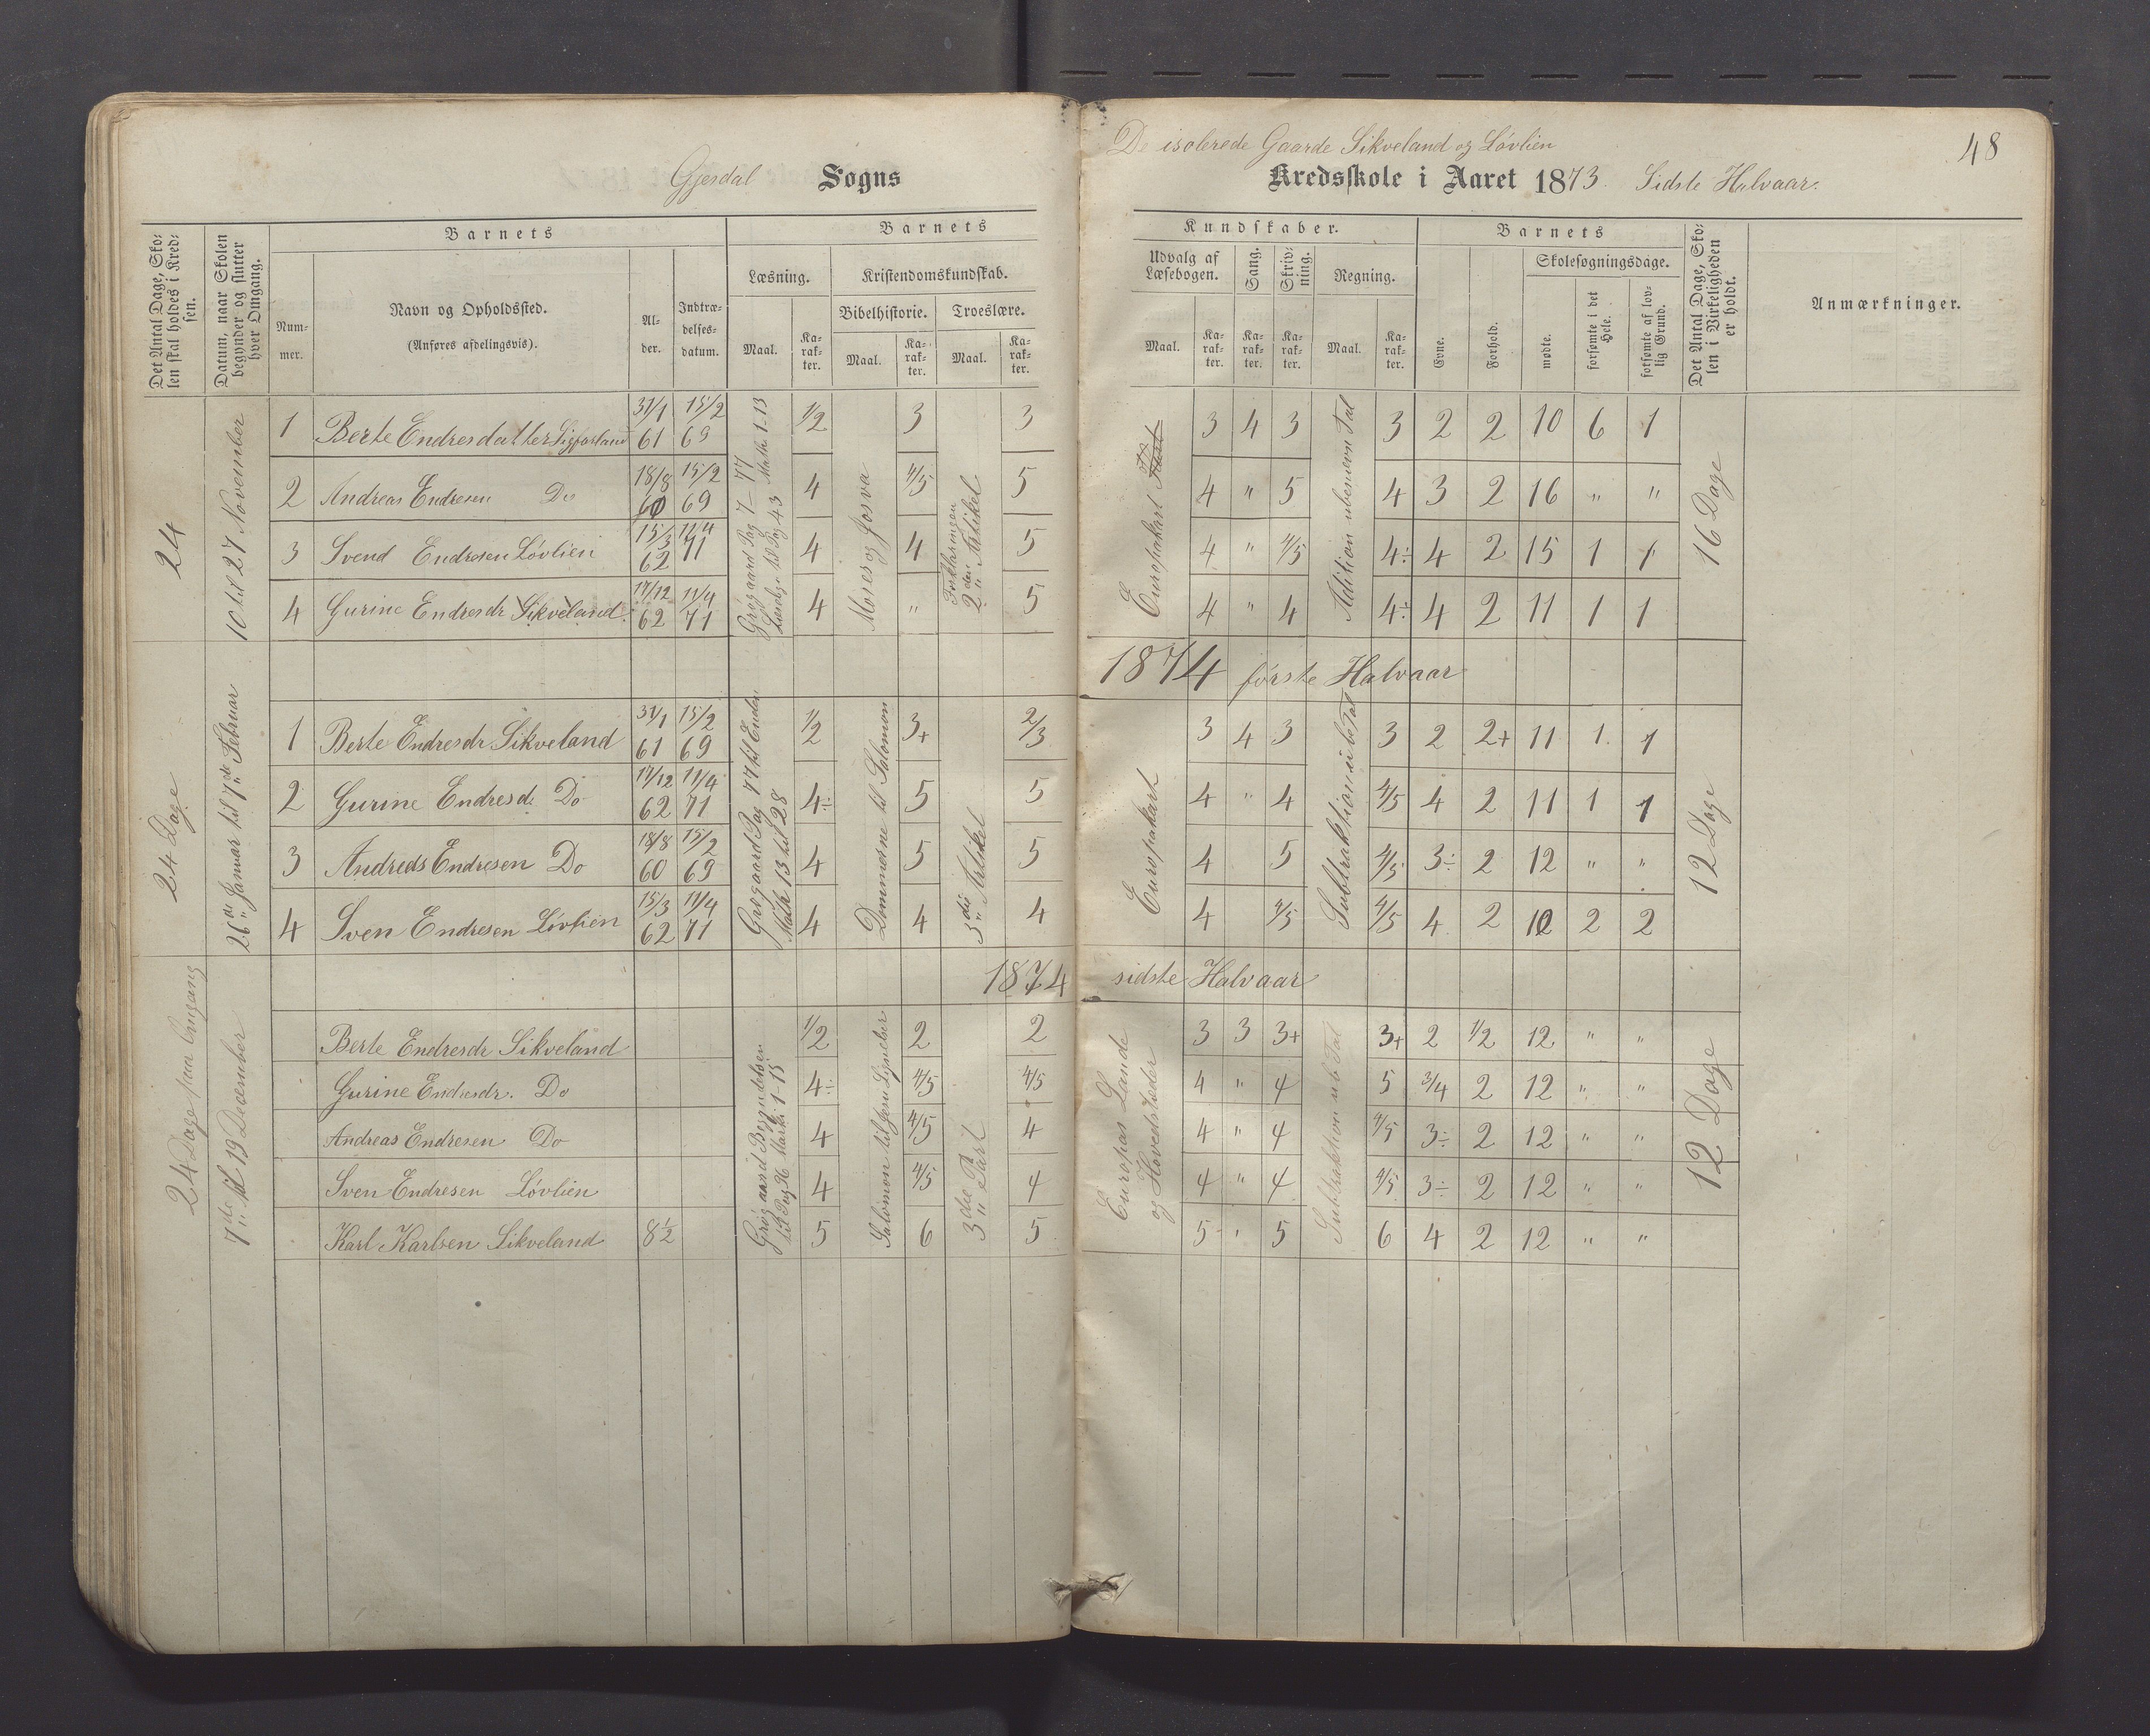 Gjesdal Sogns
De isolerede Gaarde Sikveland og Lóvlien
48
Kredsskole i Aaret 1873. Sidste Halvaar.
Det Antal Dage, Skolen skal holdes i Kredsen.
Datum, naar Skolen begynder og slutter hver Omgang.
Barnets
Nummer.
Navn og Opholdssted.
(Anføres afdelingsvis).
Alder.
Indtrædelsesdatum.
Barnets
Læsning.
Maal.
Karakter.
Kristendomskundskab.
Bibelhistorie.
Maal.
Karakter.
Troeslære.
Maal.
Karakter.
Kundskaber.
Udvalg af Læsebogen.
Maal.
Karakter.
Sang.
Karakter.
Skrivning.
Karakter.
Regning.
Maal.
Karakter.
Barnets
Evne.
Forhold.
Skolesøgningsdage.
mødte.
forsømte i det Hele.
forsømte af lovlig Grund.
Det Antal Dage, Skolen i Virkeligheden er holdt.
Anmærkninger.
24
10 til 27 November
Moses og Josva
Forklaringen 2den Artikel
Europakart
Adition ubenevn Tal
16 Dage
1 Berte Endresdatter 31/1 61 15/2 69 1/2 3 3 3 4 3 3 2 2 10 6 1
2 Andreas Endresen Do 18/8 60 15/2 69 4 4/5 5 4 " 5 4 3 2 16 " "
3 Svend Endresen Lóvlien 15/3 62 11/4 71 4 4 5 4 " 4/5 4÷ 4 2 15 1 1
4 Gurine Endresdr Sikveland. 17/12 62 11/4 71 4 " 5 4 " 4 4÷ 4 2 11 1 1
1874 fórste Halvaar
24 Dage
26de Januar til 7de Februar
Grøgaard Pag 77 til Enden
Math 13 til 28
Dommerne til Salomon
3die Artikel
Europakart
Subtraktion ub Tal
12 Dage
1 Berte Endresdr Sikveland 31/1 61 15/2 69 1/2 3+ 2/3 3 4 3 3 2 2+ 11 1 1
2 Gurine Endresd. Do 17/12 62 11/4 71 4÷ 5 5 4 " 4 4/5 4 2 11 1 1
3 Andreas Endresen Do 18/8 60 15/2 69 4 5 5 4 5 4/5 3÷ 2 12 " "
4 Sven Endresen Lóvlien 15/3 62 11/4 71 4 4 4 4 4/5 4/5 4 2 10 2 2
1874 sidste Halvaar
24 Dage paa Omgang
7de til 19 December
Grøgaard Begyndelsen
til Pag 36 Mark: 1-15
3die Part
Europas Lande
og Hovedstæder
Subtraktion ub Tal
12 Dage
Berte Endresdr Sikveland 1/2 2 2 3 3 3+ 3+ 2 1/2 12 " "
Gurine Endresdr. Do 4÷ 4/5 4/5 4 " 4 5 3/4 2 12 " "
Andreas Endresen Do 4 4/5 4 4 " 4 4/5 3÷ 2 12 " "
Sven Endresen Lóvlien 4 4/5 4 4 " 4 4/5 3÷ 2 12 " "
Karl Karlsen Sikveland 8 1/2 5 6 5 5 " 5 6 4 2 12 " "